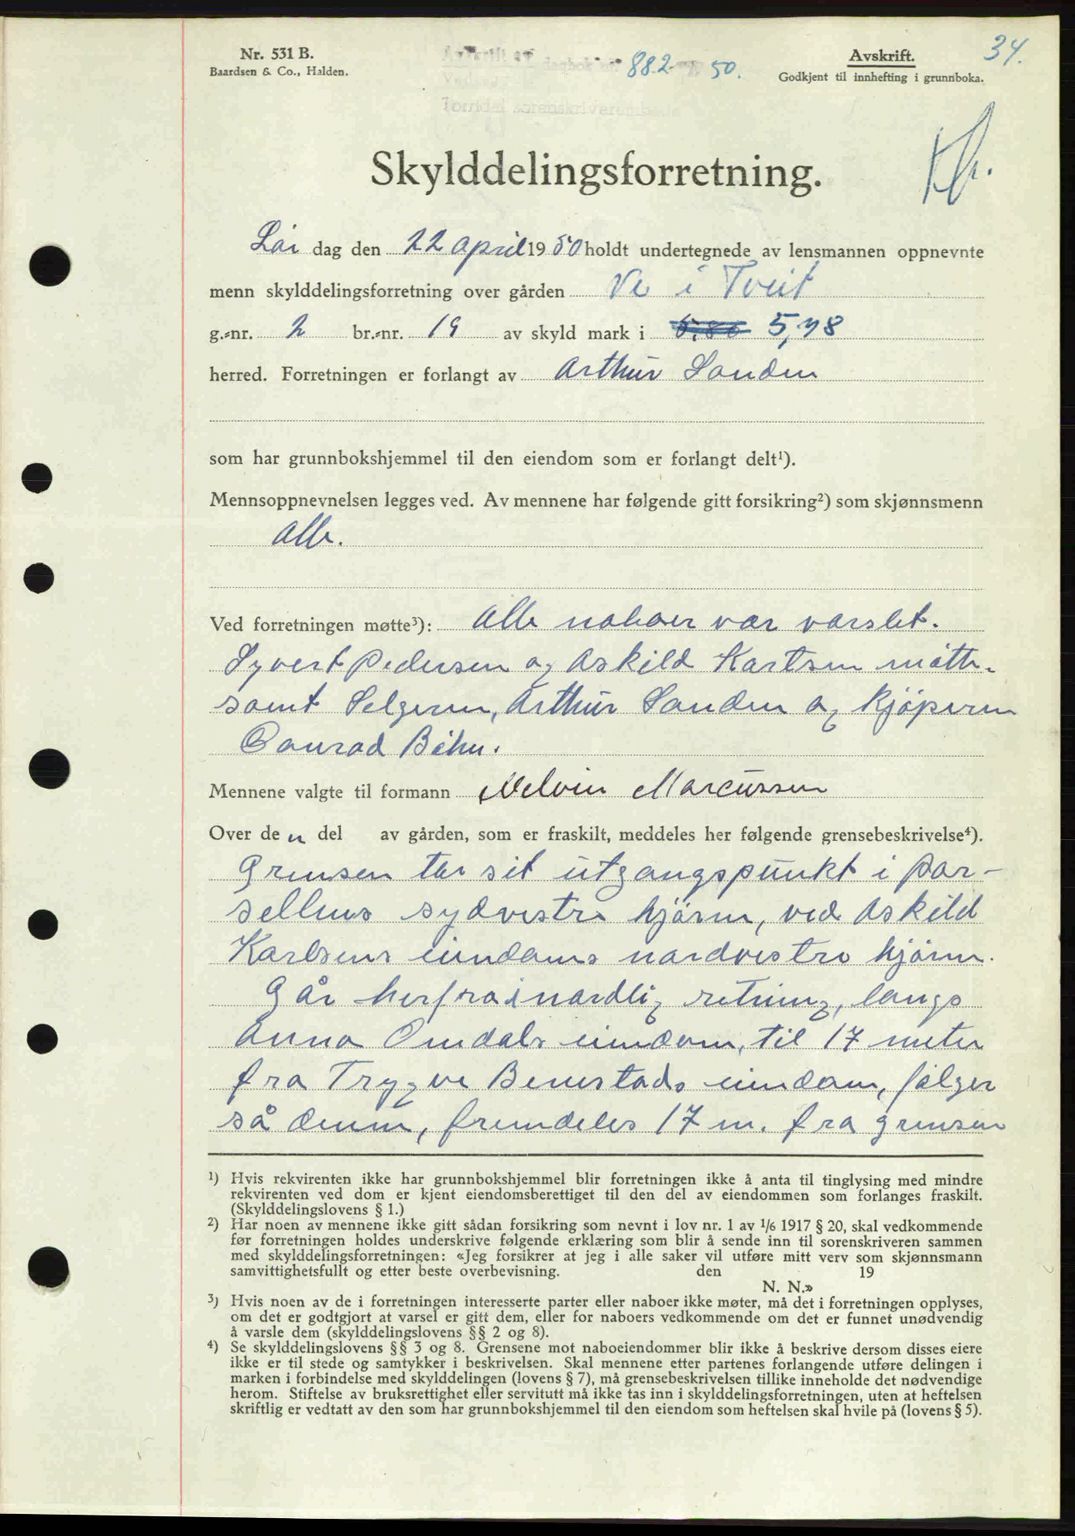 Nr. 531 B.
Baardsen & Co., Halden.
Avskrift av dagbok nr 882 50.
Torridal sorenskriverembede
Avskrift.
Godkjent til innhefting i grunnboka.
34.
Skylddelingsforretning.
Lør dag den 22 april 1950 holdt undertegnede av lensmannen oppnevnte
menn skylddelingsforretning over gården Ve i Tveit
g.-nr. 2 br.-nr. 19 av skyld mark i 5,80 5,78
herred. Forretningen er forlangt av Arthur Sanden
som har grunnbokshjemmel til den eiendom som er forlangt delt¹).
Mennsoppnevnelsen legges ved. Av mennene har følgende gitt forsikring²) som skjønnsmenn
Alle.
Ved forretningen møtte³): Alle naboer var varslet.
Syvert Pedersen og Askild Karlsen møtte
samt Selgeren, Arthur Sanden og kjøperen
Conrad Bihn.
Mennene valgte til formann Melvin Marcussen
Over de n del av gården, som er fraskilt, meddeles her følgende grensebeskrivelse⁴).
Grensen tar sit utgangspunkt i par-
sellens sydvestre hjørne, ved Askild
Karlsens eiendoms nordvestre hjørne.
Går herfra i nordlig retning, langs
Anna Omdals eiendom, til 17 meter
fra Trygve Benestads eiendom, følger
så denne, fremdeles 17 m. fra grensen
¹) Hvis rekvirenten ikke har grunnbokshjemmel blir forretningen ikke å anta til tinglysing med mindre
rekvirenten ved dom er kjent eiendomsberettiget til den del av eiendommen som forlanges fraskilt.
(Skylddelingslovens § 1.)
²) Har noen av mennene ikke gitt sådan forsikring som nevnt i lov nr. 1 av 1/6 1917 § 20, skal vedkommende
før forretningen holdes underskrive følgende erklæring som blir å sende inn til sorenskriveren sammen
med skylddelingsforretningen: «Jeg forsikrer at jeg i alle saker vil utføre mitt verv som skjønnsmann
samvittighetsfullt og etter beste overbevisning. den 19
N. N.»
³) Hvis noen av de i forretningen interesserte parter eller naboer ikke møter, må det i forretningen opplyses,
om det er godtgjort at varsel er gitt dem, eller for naboers vedkommende om det er funnet unødvendig
å varsle dem (skylddelingslovens §§ 2 og 8).
⁴) Se skylddelingslovens §§ 3 og 8. Grensene mot naboeiendommer blir ikke å beskrive dersom disses eiere
ikke er til stede og samtykker i beskrivelsen. Skal mennene etter partenes forlangende utføre delingen i
marken i forbindelse med skylddelingen (lovens § 7), må grensebeskrivelsen tillike inneholde det nødvendige
herom. Stiftelse av bruksrettighet eller servitutt må ikke tas inn i skylddelingsforretningen, uten at heftelsen
skriftlig er vedtatt av den som har grunnbokshjemmel til den eiendom som heftelsen skal hvile på (lovens § 5).